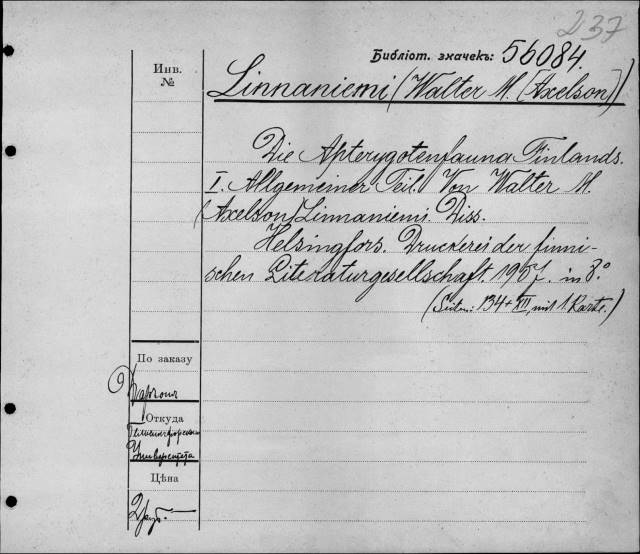 237
Библіот. значекъ: 56084.
Инв.
№
Linnaniemi (Walter M. [Axelson])
Die Apterygotenfauna Finlands.
I. Allgemeiner Teil. Von Walter M.
(Axelson) Linnaniemi. Diss.
Helsingfors. Druckerei der finni-
schen Literaturgesellschaft. 1907. in 8.°
(Seiten: 134 + XII, mit 1 Karte.)
По заказу
Откуда
Университета
Цѣна
2 руб. —